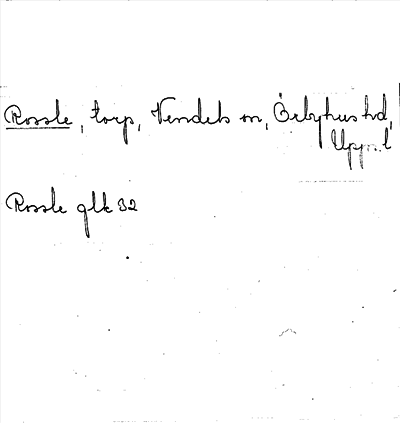 Rossle, torp, Vendels sn, Örbyhus hd,
Uppl
Rossle glk 32